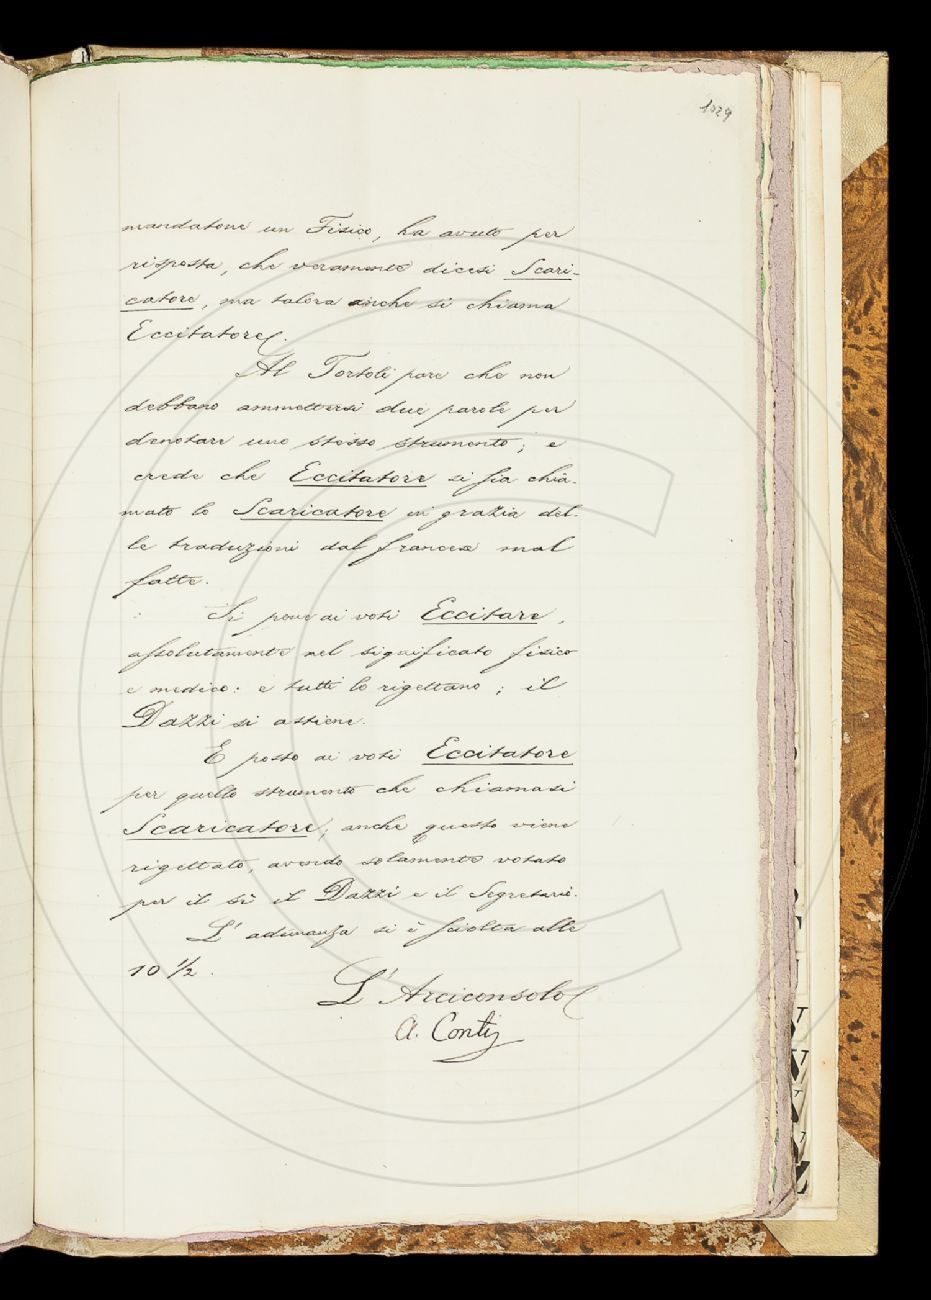 1029
mandatone un Fisico, ha avuto per
risposta, che veramente dicesi Scari-
catore, ma talora anche si chiama
Eccitatore.
Al Tortoli pare che non
debbano ammettersi due parole per
denotare uno stesso strumento; e
crede che Eccitatore si sia chia-
mato lo Scaricatore in grazia del-
le traduzioni dal francese mal
fatte.
Si pone ai voti Eccitare,
assolutamente nel significato fisico
e medico: e tutti lo rigettano; il
Dazzi si astiene.
È posto ai voti Eccitatore
per quello strumento che chiamasi
Scaricatore; anche questo viene
rigettato, avendo solamente votato
per il sì il Dazzi e il Segretario.
L'adunanza si è sciolta alle
10 1/2.
L'Arciconsolo
A. Conti